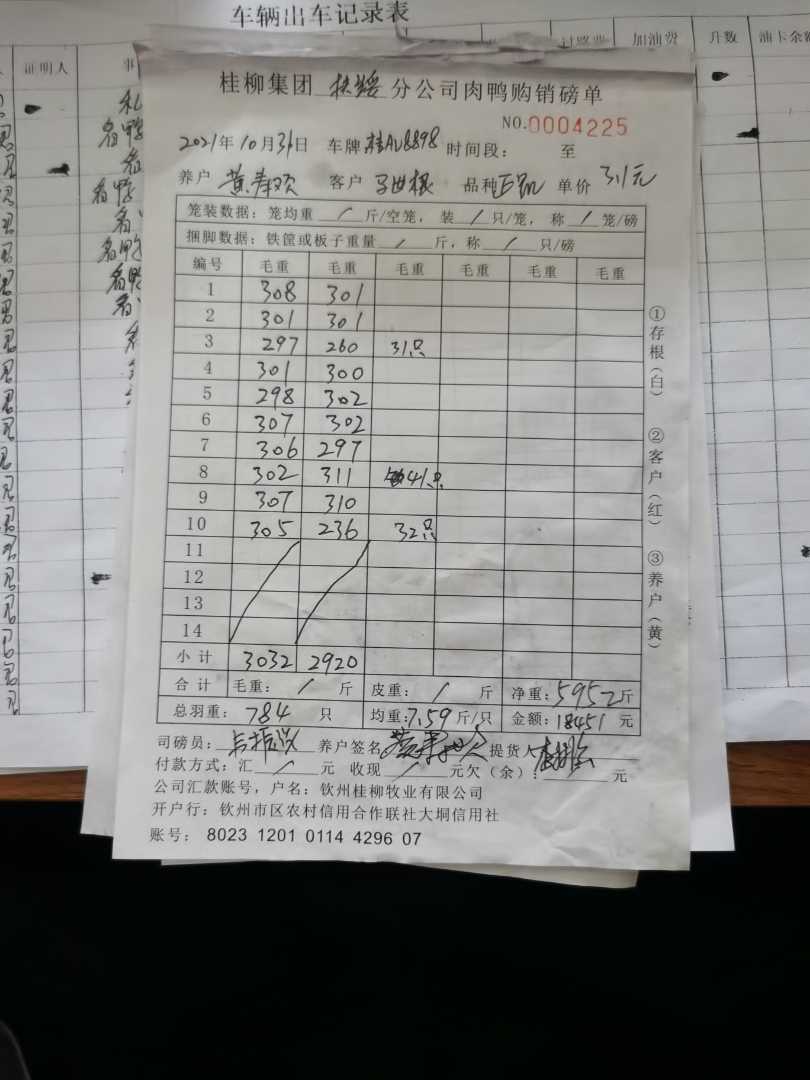 车辆出车记录表
证明人
加油费 升数 油卡余额
桂柳集团 扶绥 分公司肉鸭购销磅单
NO.0004225
2021年10月31日 车牌 桂AU8898 时间段： 至
养户 黄寿欢 客户 品种 单价 3.1元
笼装数据：笼均重 / 斤/空笼，装 / 只/笼，称 / 笼/磅
捆脚数据：铁筐或板子重量 / 斤，称 / 只/磅
编号 毛重 毛重 毛重 毛重 毛重 毛重
1 308 301
2 301 301
3 297 260 31只
4 301 300
5 298 302
6 307 302
7 306 297
8 302 311 41只
9 307 310
10 305 236 32只
11
12
13
14
小计 3032 2920
合计 毛重： / 斤 皮重： / 斤 净重：5952斤
总羽重：784 只 均重：7.59斤/只 金额：18451 元
司磅员： 养户签名 提货人
付款方式：汇 / 元 收现 / 元欠（余）： 元
公司汇款账号，户名：钦州桂柳牧业有限公司
开户行：钦州市区农村信用合作联社大垌信用社
账号： 8023 1201 0114 4296 07
①存根（白）
②客户（红）
③养户（黄）